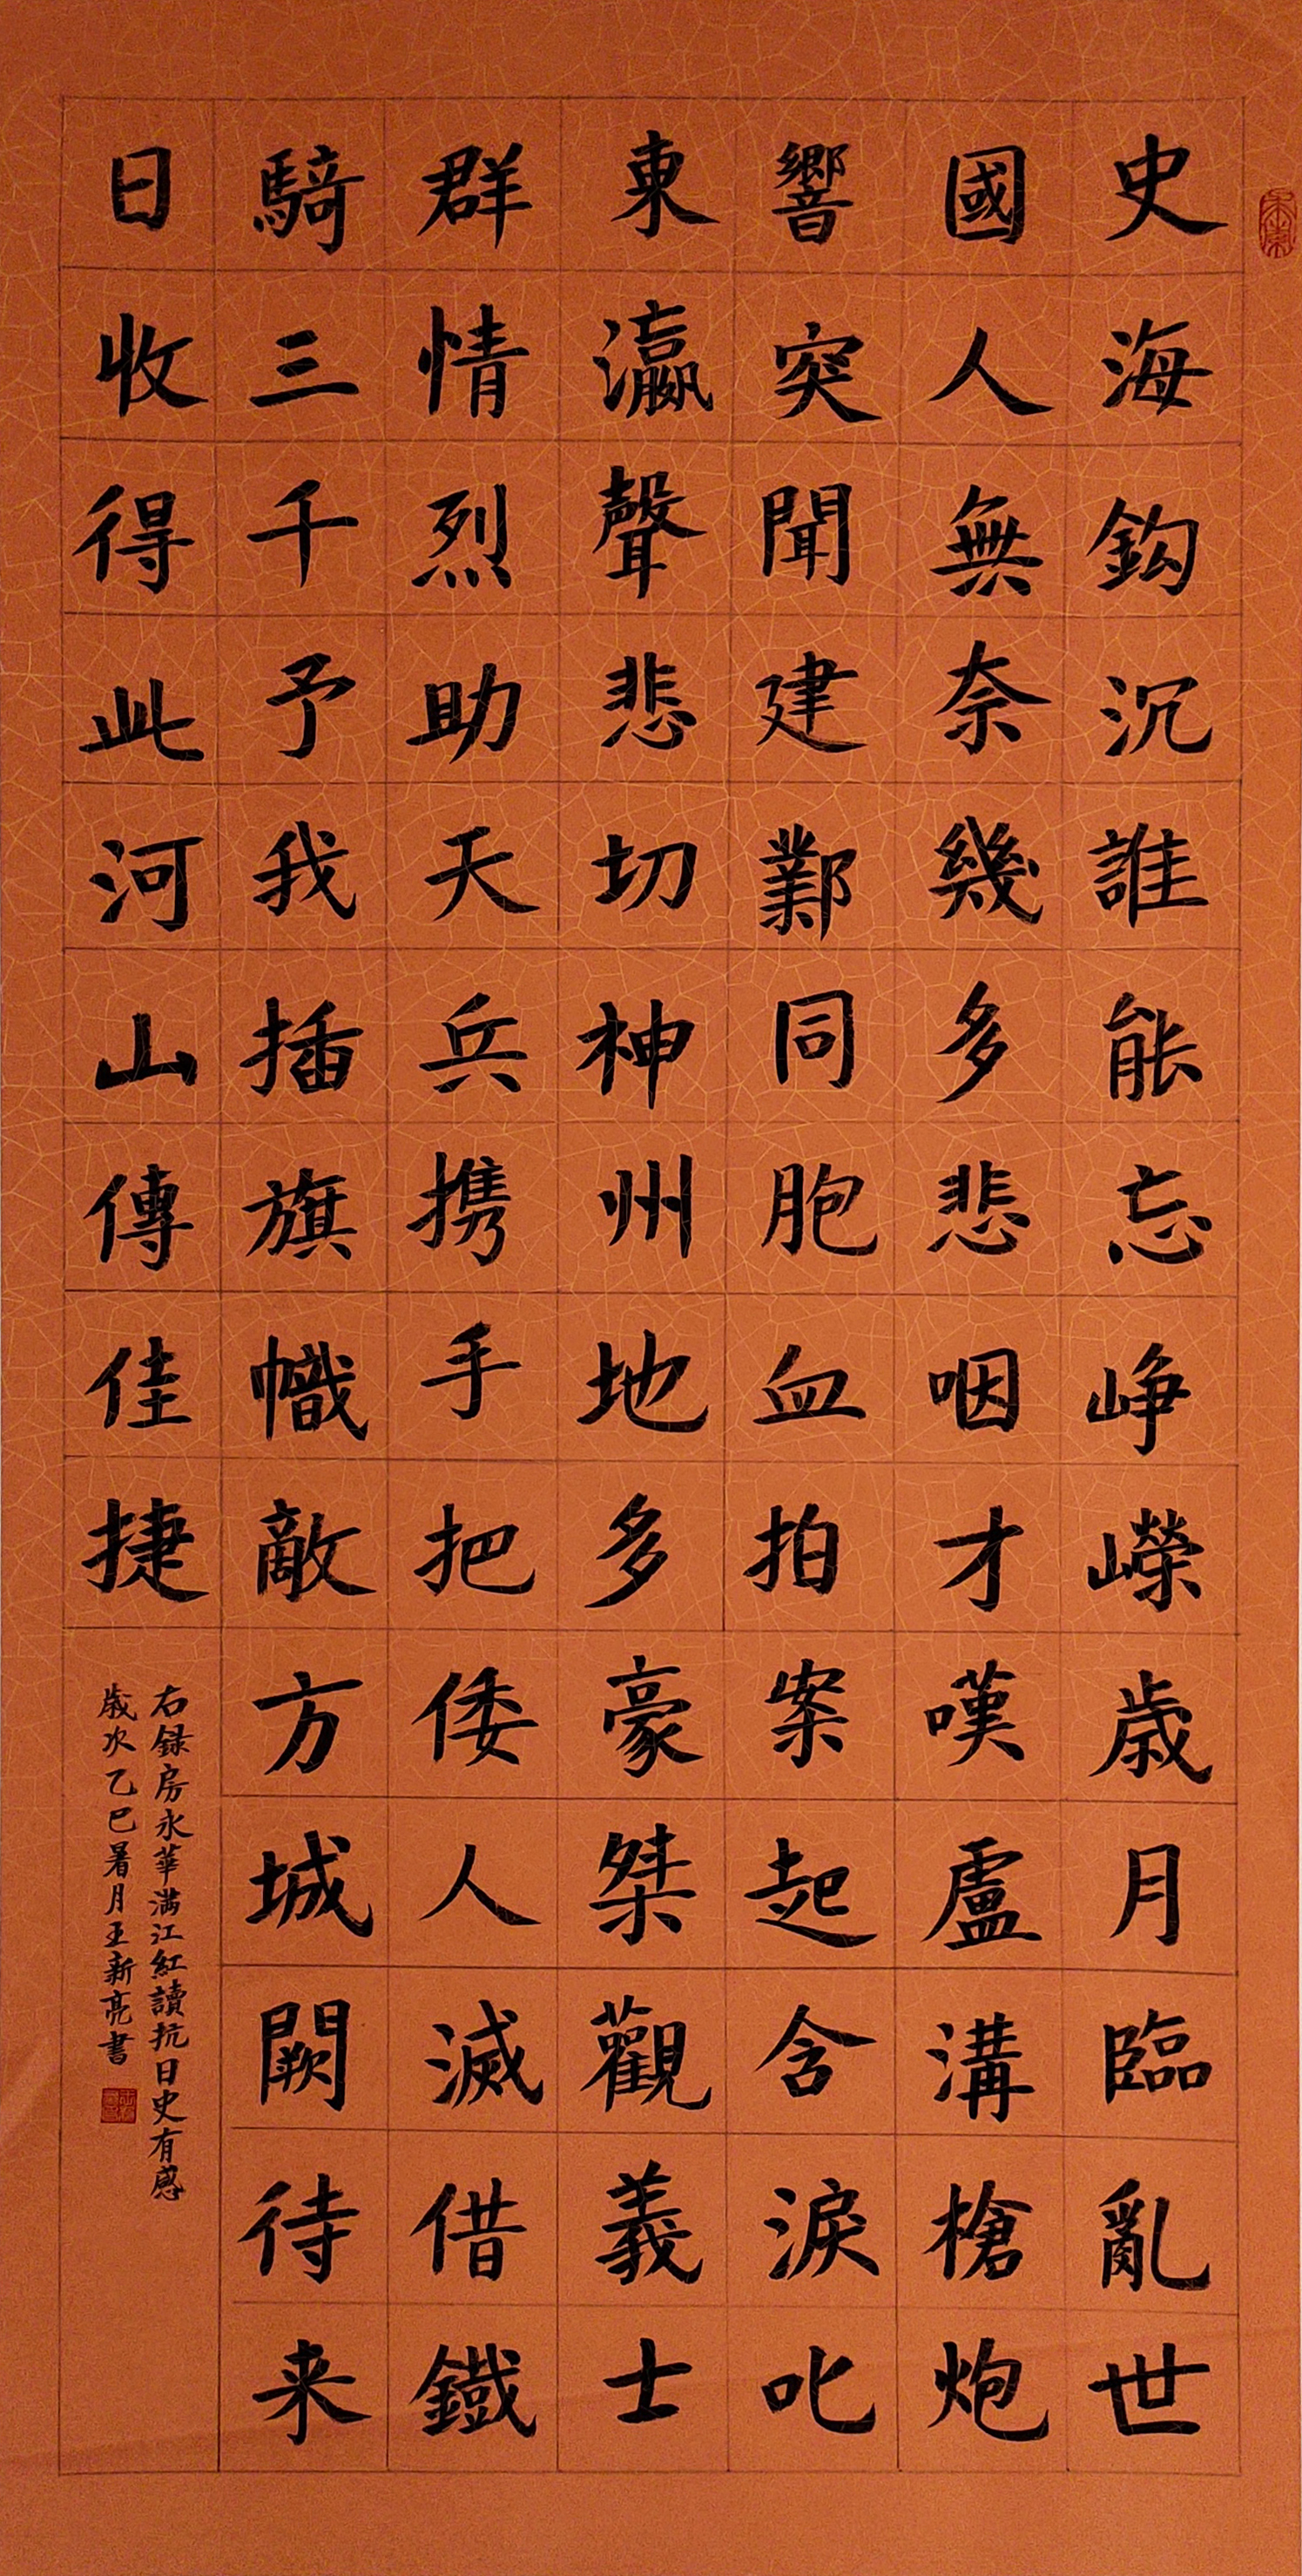 史海鈎沉誰能忘崢嶸歲月臨亂世
國人無奈幾多悲咽才嘆盧溝槍炮
響突聞建鄴同胞血拍案起含淚叱
東瀛聲悲切神州地多豪桀觀義士
群情烈助天兵携手把倭人滅借鐵
騎三千予我插旗幟敵方城闕待来
日收得此河山傳佳捷
右録房永華滿江紅讀抗日史有感
歲次乙巳暑月王新亮書